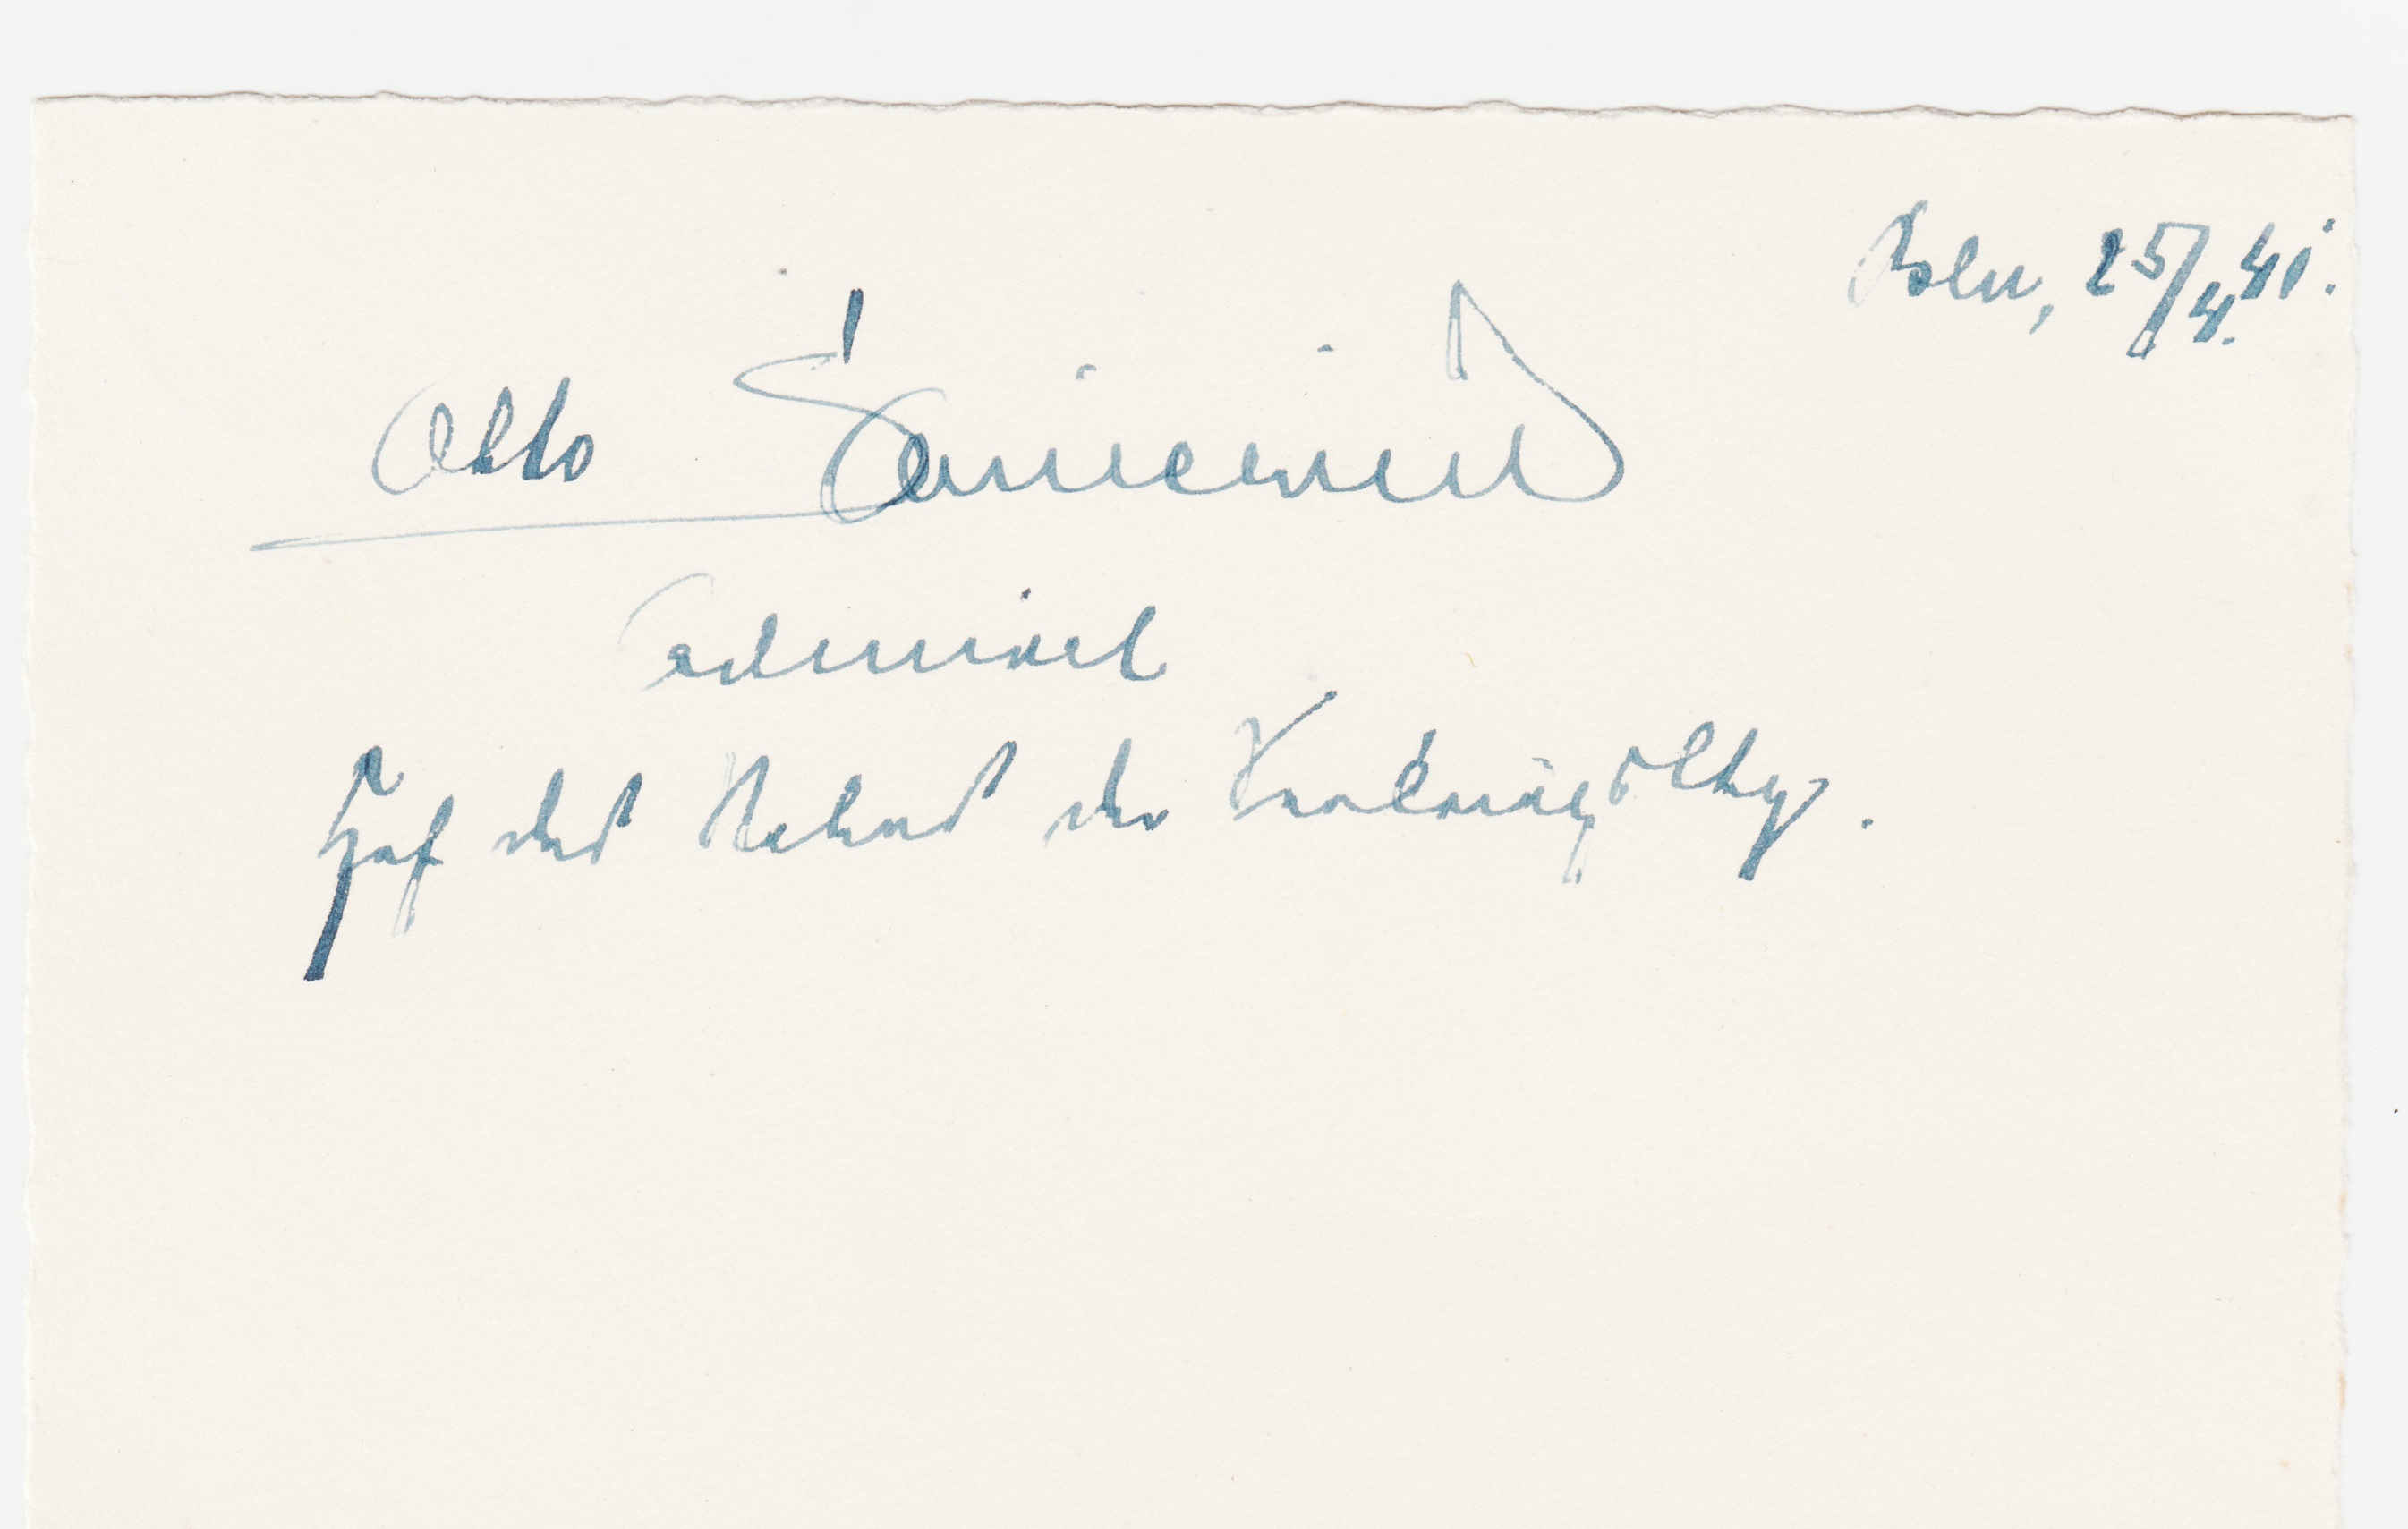 25/4. 41.
Otto Schniewind
Admiral
Chef des Stabes der Seekriegsltg.